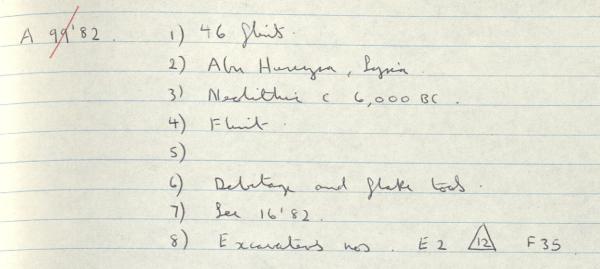 A 99'82. 1) 46 flints.
2) Abu Hureyra, Syria.
3) Neolithic c 6,000 BC.
4) Flint.
5)
6) Debitage and flake tools.
7) See 16'82.
8) Excavators nos. E2 12 F35